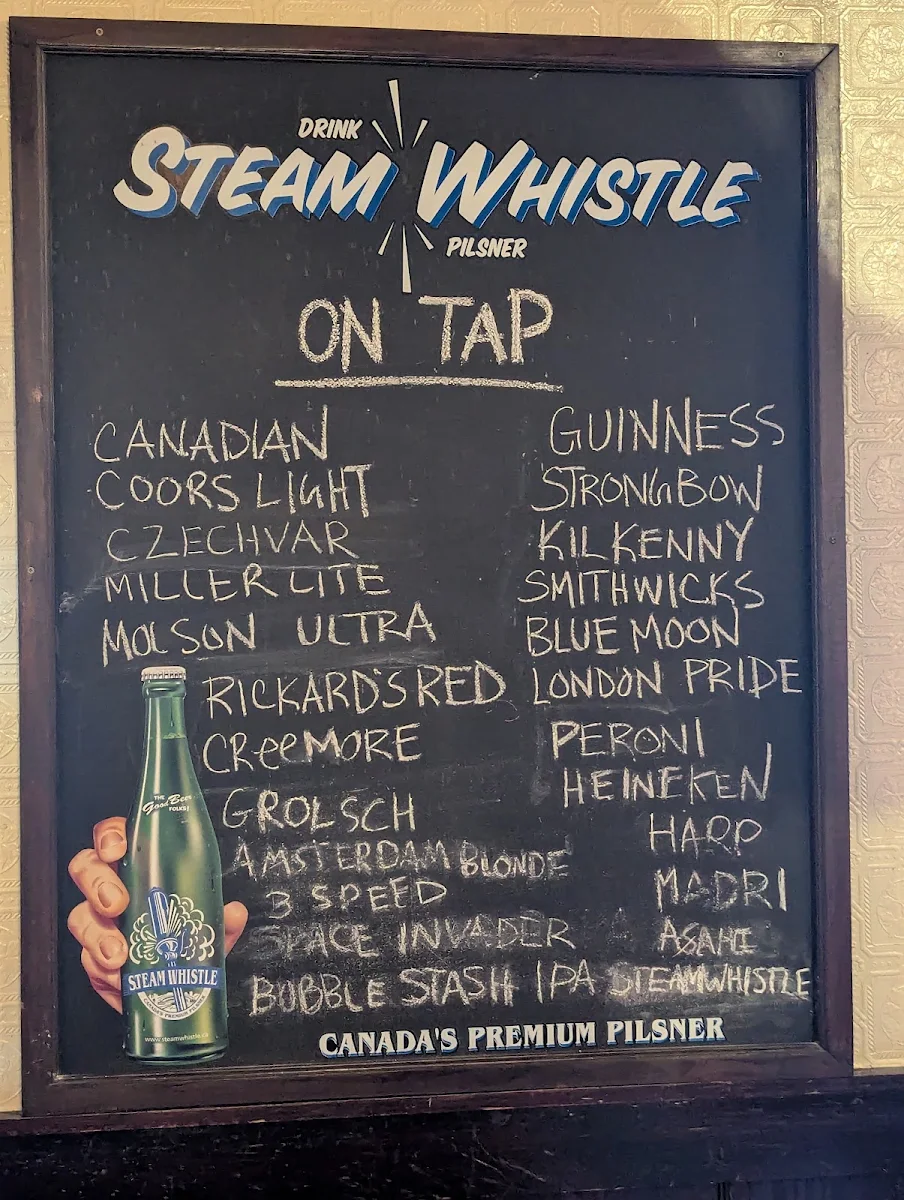 DRINK
STEAM WHISTLE
PILSNER
ON TAP
CANADIAN
COORS LIGHT
CZECHVAR
MILLER LITE
MOLSON ULTRA
RICKARD'S RED
CReeMORE
GROLSCH
AMSTERDAM BLONDE
3 SPEED
SPACE INVADER
BUBBLE STASH IPA
GUINNESS
STRONGBOW
KILKENNY
SMITHWICKS
BLUE MOON
LONDON PRIDE
PERONI
HEINEKEN
HARP
MADRI
ASAHI
STEAMWHISTLE
THE
Good Beer
FOLKS!
STEAM WHISTLE
CANADA'S PREMIUM PILSNER
www.steamwhistle.ca
CANADA'S PREMIUM PILSNER